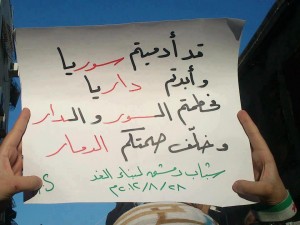 قد أدميتم سوريا
و أبدتم داريا
السور والدار
و خلّف صمتكم الدمار
شباب دمشق لبناء الغد
٢٠١٢/٨/٢٨م